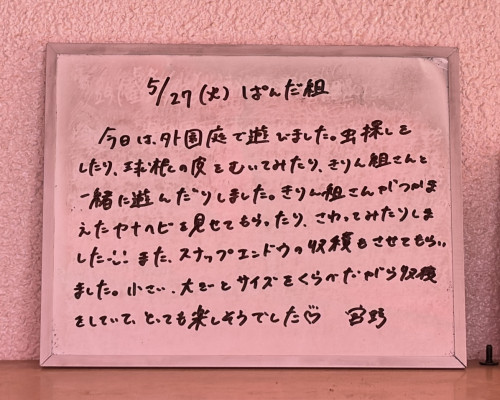 5/27(火) ぱんだ組
今日は、外園庭で遊びました。虫探しを
したり、球根の皮をむいてみたり、きりん組さんと
一緒に遊んだりしました。きりん組さんがつかま
えたヤナヘビを見せてもらったり、さわってみたりしま
した:) また、スナップエンドウの収穫もさせてもらい
ました。小さい、大きいとサイズをくらべながら収穫
をしていて、とっても楽しそうでした♡ 宮野